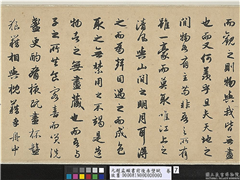 而觀之則物與我皆無盡
也而又何羨乎且夫天地之
間物各有主苟非吾之所有
雖一毫而莫取唯江上之
清風與山間之明月耳得
之而為聲目遇之而成色
取之無禁用之不竭是造
物者之無盡藏也而吾與
子之所共食客喜而笑洗
盞更酌肴核既盡杯盤
狼藉相與枕藉乎舟中
元趙孟頫書前後赤壁賦 卷
7